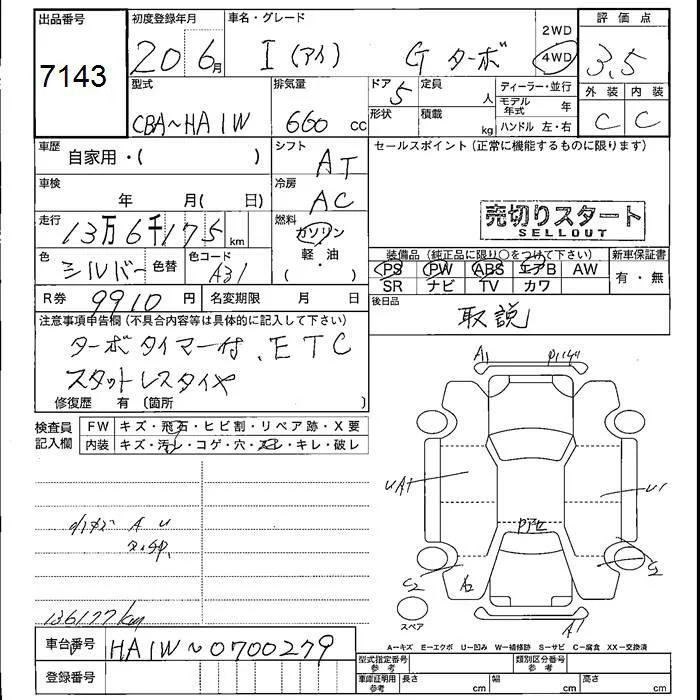 出品番号
7143
初度登録年月
20 6月
車名・グレード
I (アイ) G ターボ
2WD
4WD
評価点
3.5
型式
CBA~HA1W
排気量
660 cc
ドア 5
形状
定員 人
積載 kg
ディーラー・並行
モデル年式 年
ハンドル 左・右
外装 内装
C C
車歴 自家用・( )
シフト AT
車検 年 月( 日)
冷房 AC
走行 13万6千175 km
燃料 ガソリン
軽・油
( )
色 シルバー 色替
色コード A31
R券 9910円
名変期限 月 日
セールスポイント (正常に機能するものに限ります)
売切りスタート
SELLOUT
装備品 (純正品に限り○をつけて下さい)
PS PW ABS エアB AW
SR ナビ TV カワ
新車保証書
有・無
後日品
取説
注意事項申告欄 (不具合内容等は具体的に記入して下さい)
ターボタイマー付、ETC
スタットレスタイヤ
修復歴 有 (箇所 )
検査員記入欄
FW キズ・飛石・ヒビ割・リペア跡・X要
内装 キズ・汚レ・コゲ・穴・スレ・キレ・破レ
A U
136177km
車台番号 HA1W~0700279
登録番号
A1
UA1
U1
C2
A2
C2
A1
スペア
A-キズ E-エクボ U-凹み W-補修跡 S-サビ C-腐食 XX-交換済
型式指定番号 参考
類別区分番号 参考
車庫証明用 参考
長さ cm
幅 cm
高さ cm